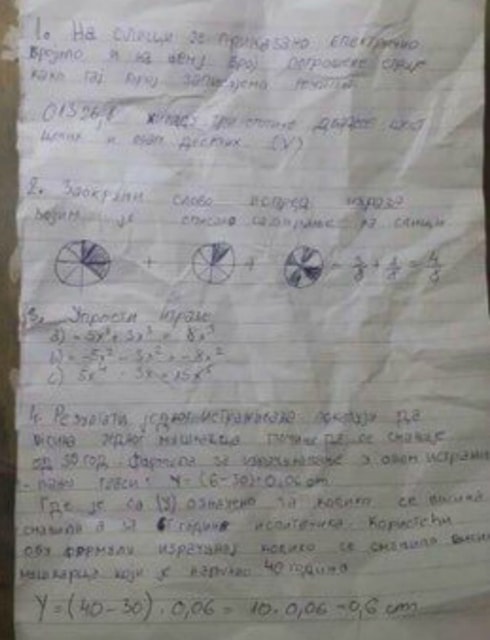 1. На слици је приказано електрично
бројило и на њему број потрошене струје
како тај број записујемо речима
01326,8 хиљаду три стотине двадесет шест
целих и осам десетих (V)
2. Заокружи слово испред израза
којим је описано сабирање на слици
+ + = 3/8 + 1/8 = 4/8
3. Упрости изразе
a) 5x³ + 3x³ = 8x³
b) -5x² - 3x² = -8x²
c) 5x⁴ · 3x = 15x⁵
4. Резултати једног истраживања показују да
висина једног мушкарца почиње да се смањује
од 30 год. Формула за израчунавање у овом
гласи: Y = (6-30)·0,06 cm
Где је са (Y) означено за колико се висина
смањила а са година испитаника. Користећи
ову формулу израчунај колико се смањила
мушкарца који је напунио 40 година
Y = (40 - 30) · 0,06 = 10 · 0,06 = 0,6 cm